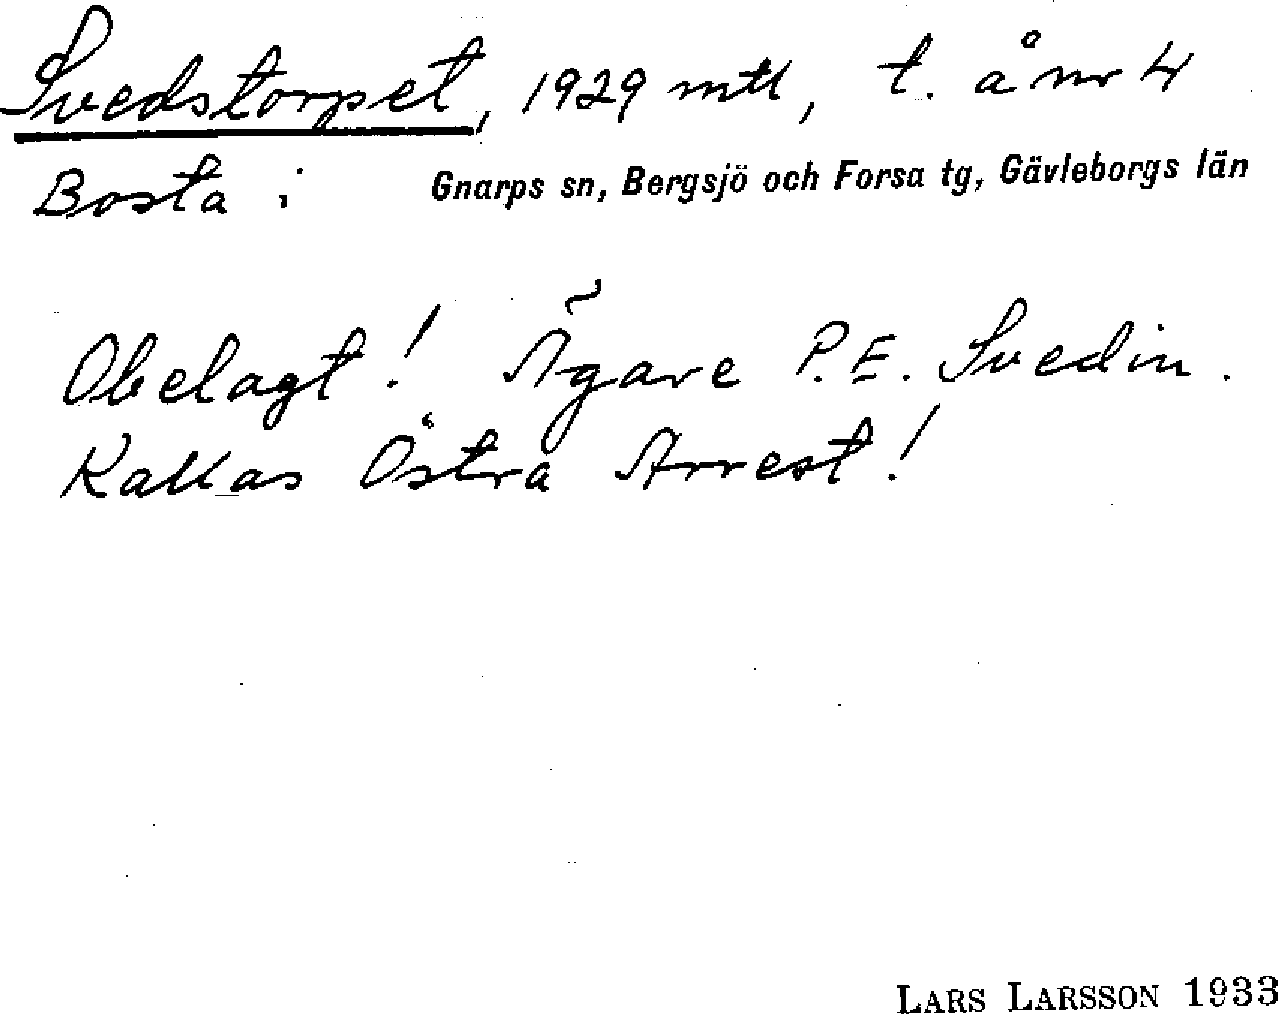 Svedstorpet, 1929 mtl, t. å nr 4
Bosta i Gnarps sn, Bergsjö och Forsa tg, Gävleborgs län
Obelagt! Ägare P.E. Svedin.
Kallas Östra Arrest!
LARS LARSSON 1933